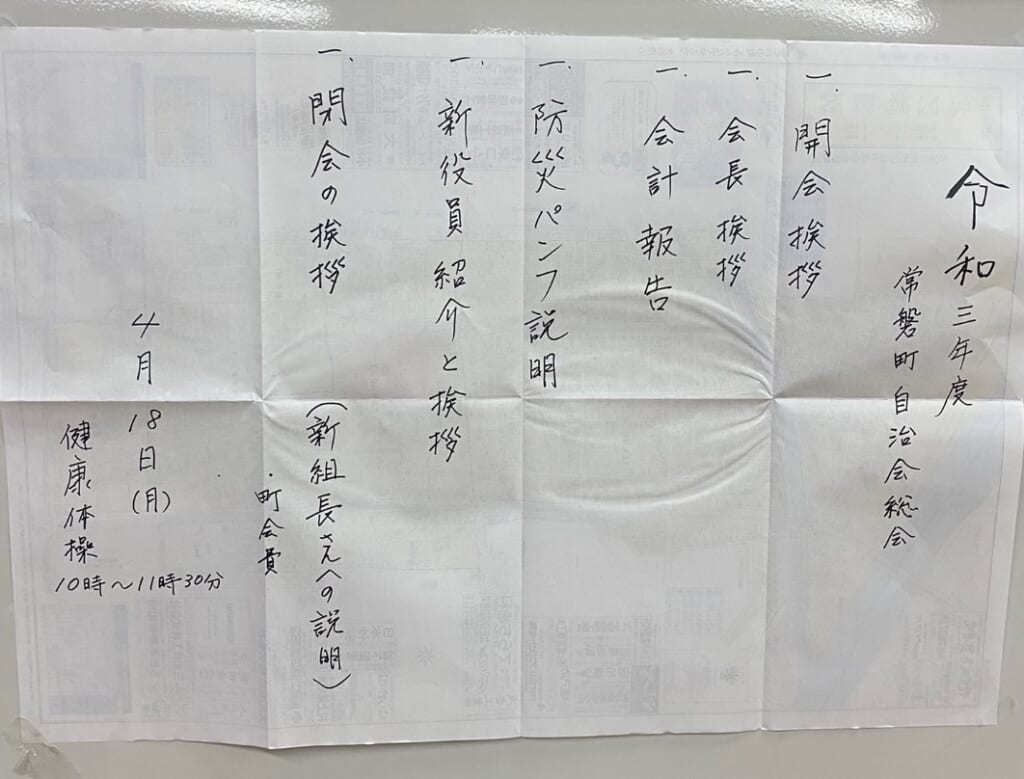 令和三年度
常磐町自治会総会
一、開会挨拶
一、会長挨拶
一、会計報告
一、防災パンフ説明
一、新役員紹介と挨拶
一、閉会の挨拶
(新組長さんへの説明)
・町会費
4月18日(月)
健康体操
10時～11時30分